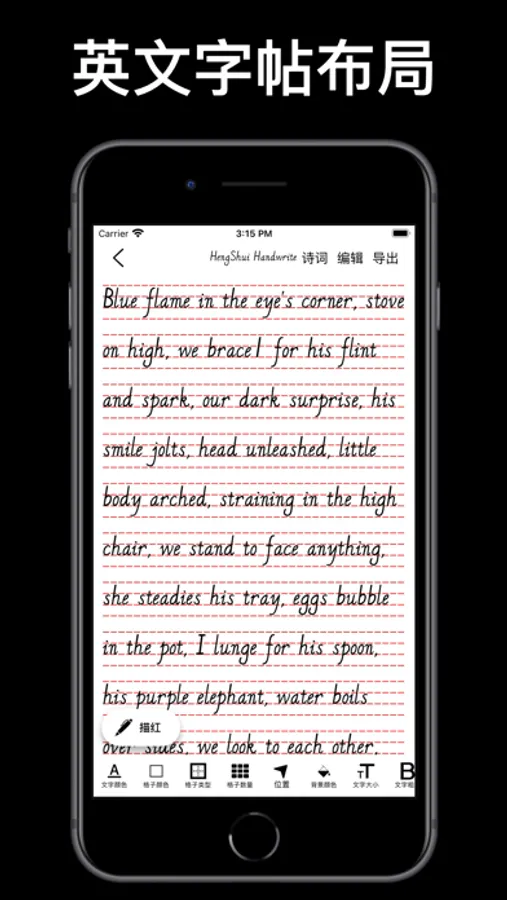 英文字帖布局
Carrier 3:15 PM
HengShui Handwrite 诗词 编辑 导出
Blue flame in the eye's corner, stove
on high, we brace1 for his flint
and spark, our dark surprise, his
smile jolts, head unleashed, little
body arched, straining in the high
chair, we stand to face anything,
she steadies his tray, eggs bubble
in the pot, I lunge for his spoon,
his purple elephant, water boils
描红
over sides, we look to each other,
文字颜色 格子颜色 格子类型 格子数量 位置 背景颜色 文字大小